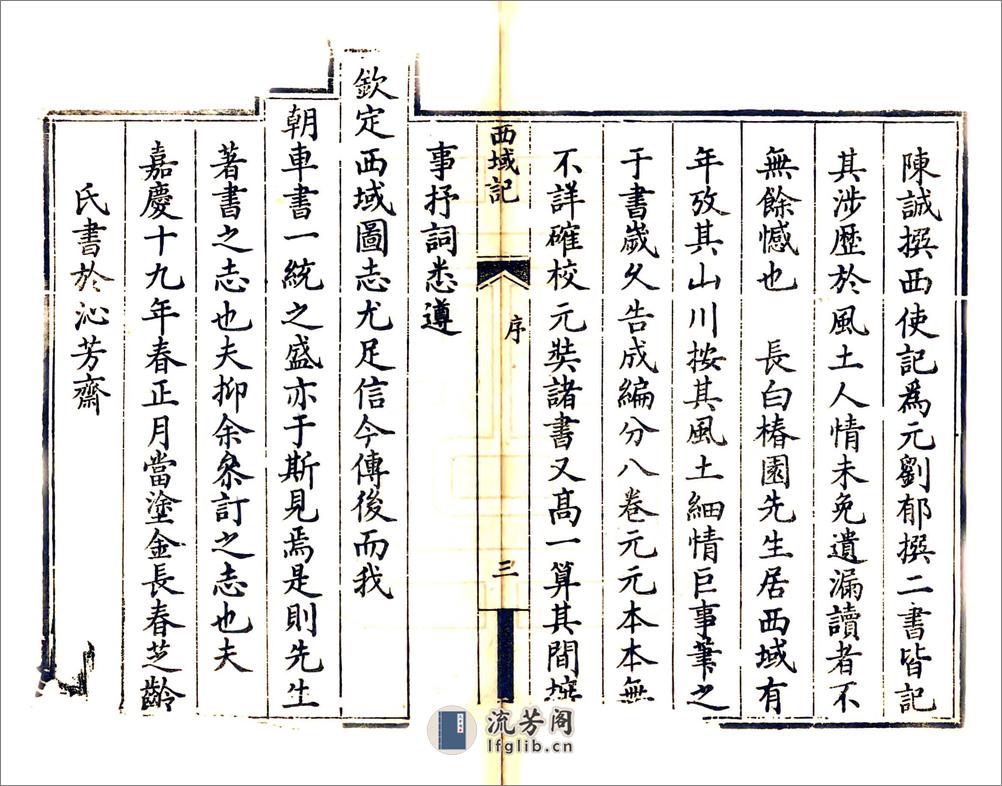 陳誠撰西使記爲元劉郁撰二書皆記
其涉歷於風土人情未免遺漏讀者不
無餘憾也　長白椿園先生居西域有
年攷其山川按其風土細情巨事筆之
于書歲久告成編分八卷元元本本無
不詳確校元奘諸書又高一算其間摭
西域記
序
三
事抒詞悉遵
欽定西域圖志尤足信今傳後而我
朝車書一統之盛亦于斯見焉是則先生
著書之志也夫抑余叅訂之志也夫
嘉慶十九年春正月當塗金長春芝齡
氏書於沁芳齋
流芳阁
lfglib.cn